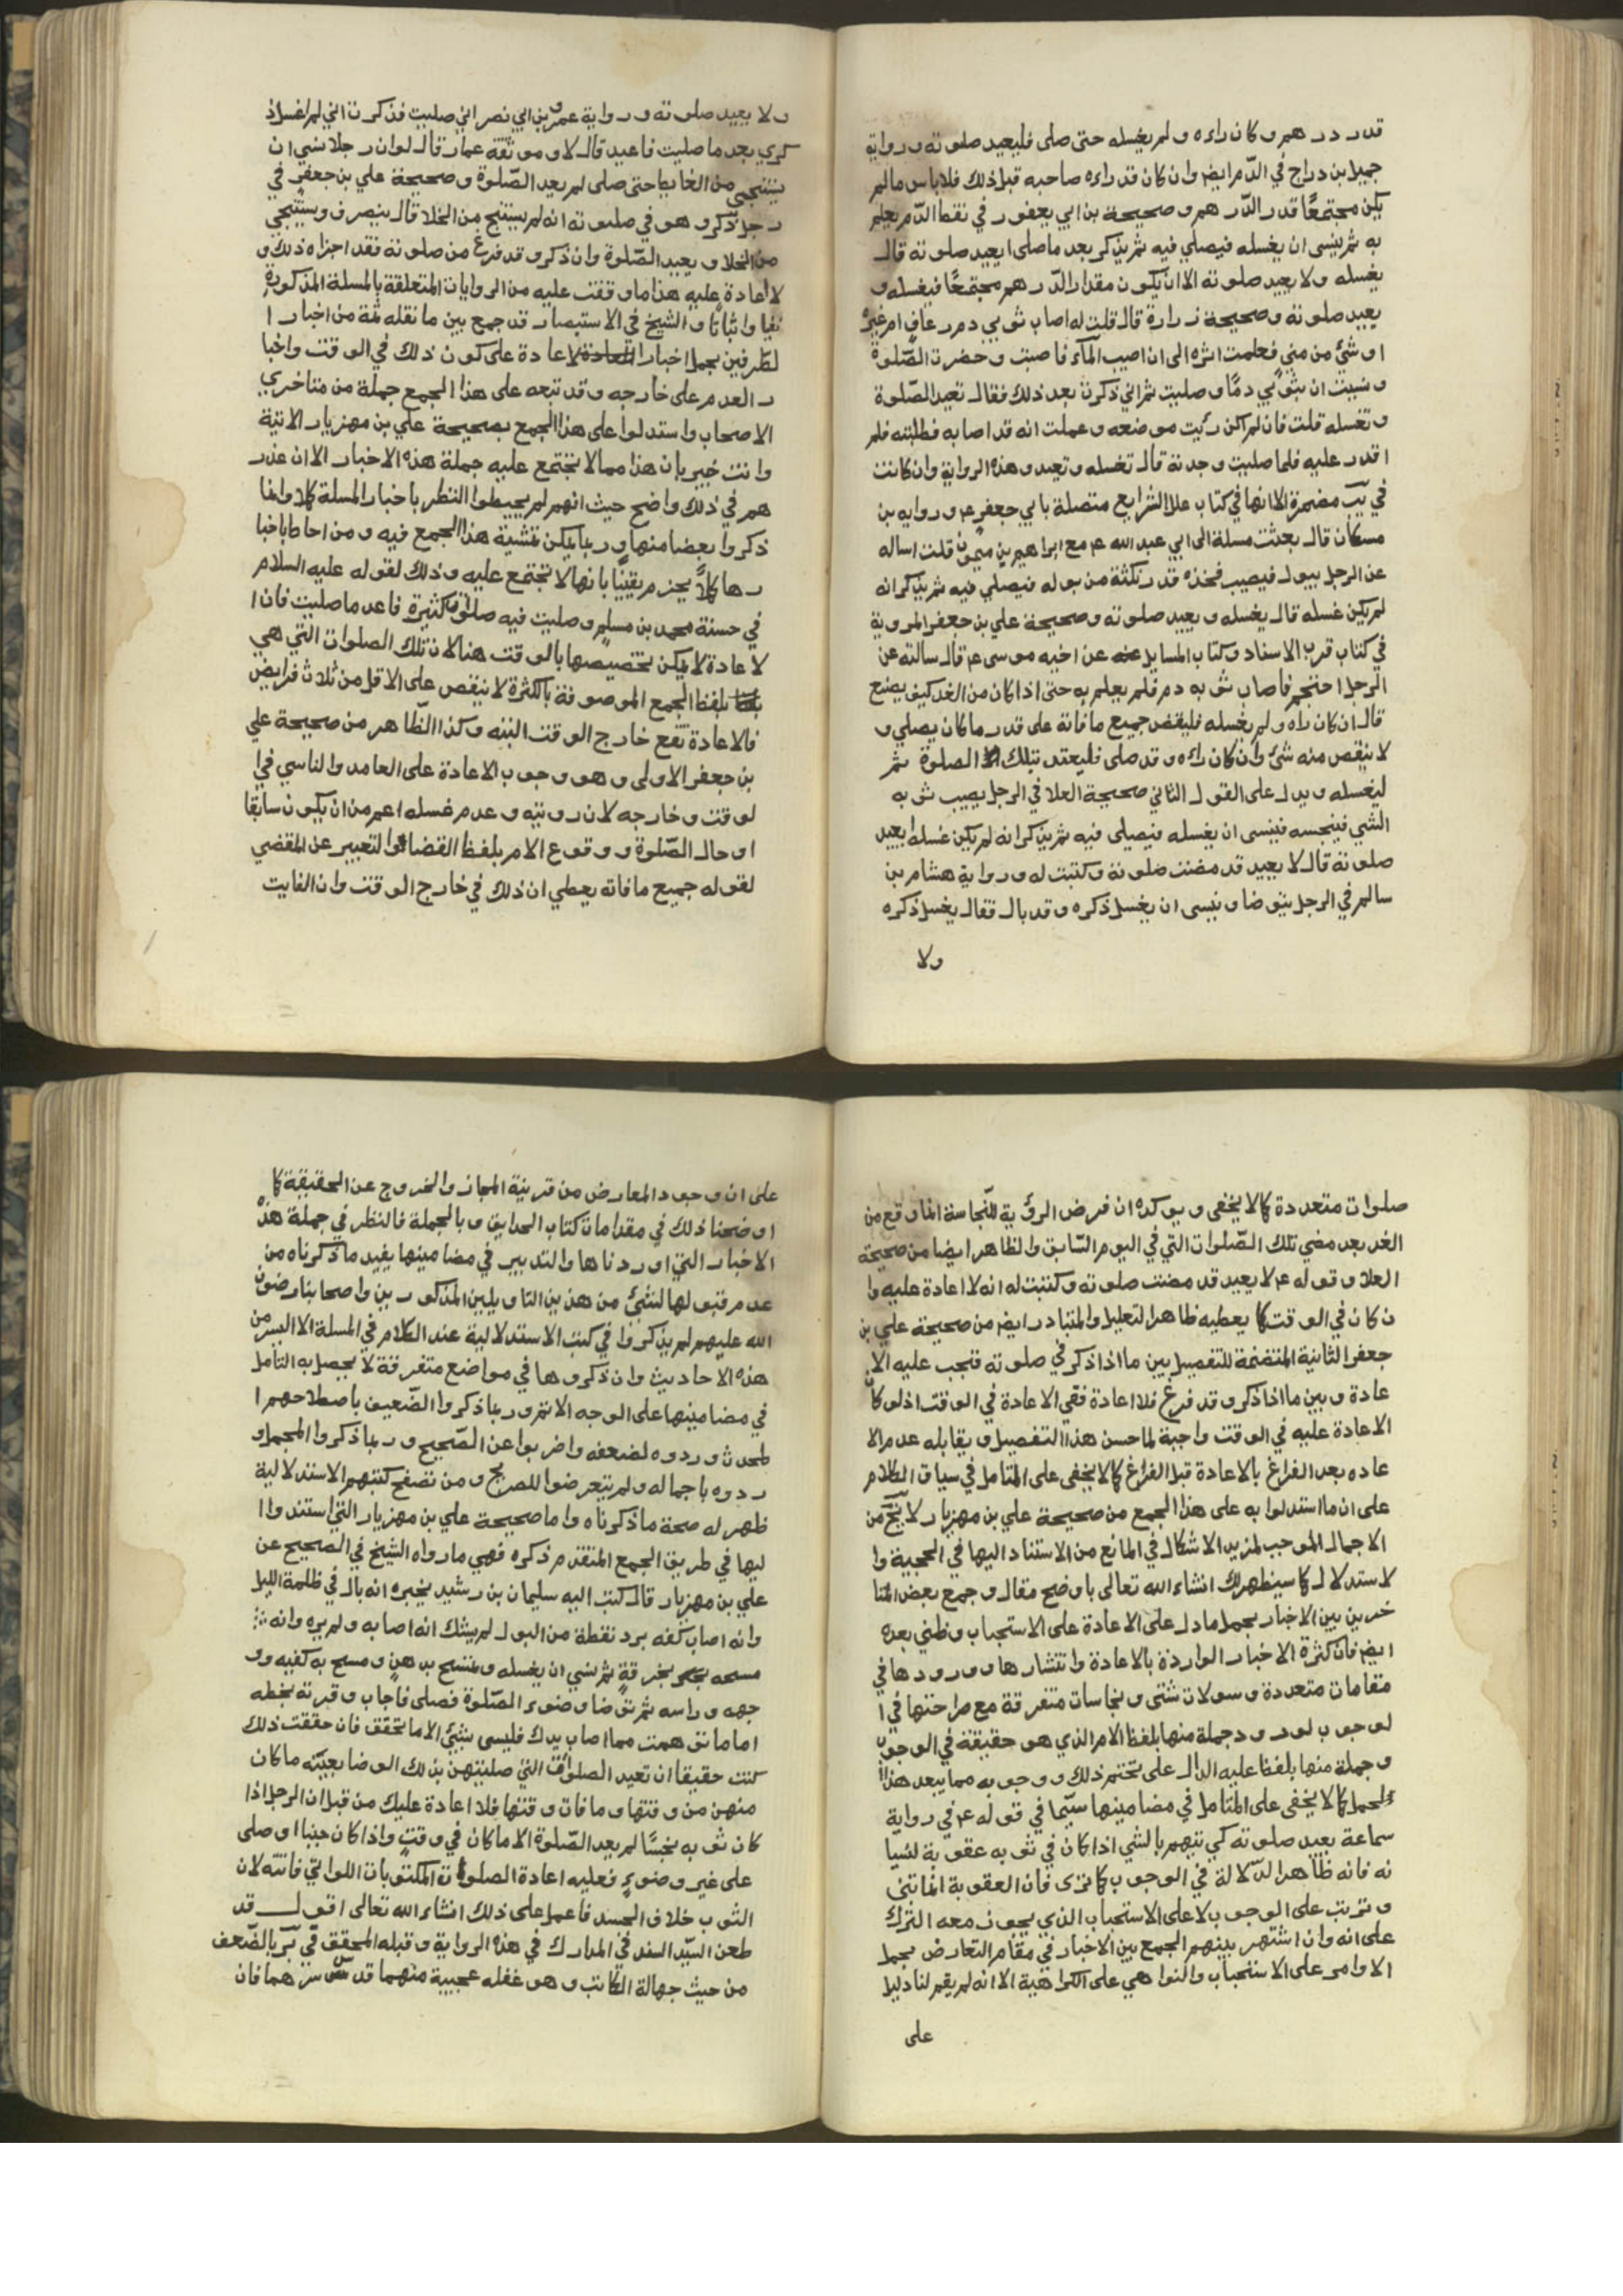 قدر درهم وكان راءه ولم يغسله حتى صلى فليعيد صلوته ورواية
جميل بن دراج في الدّم ايضا وان كان قد راءه صاحبه قبل ذلك فلا باس مالم
يكن مجتمعًا قدر الدّرهم وصحيحة بن ابي يعفور في نقط الدّم يعلم
به ثم ينسى ان يغسله فيصلي فيه ثم يذكر بعد ما صلى ايعيد صلوته قال
يغسله ولا يعيد صلوته الا ان يكون مقدار الدّرهم مجتمعًا فيغسله و
يعيد صلوته وصحيحة زرارة قال قلت له اصاب ثوبي دم رعاف ام غيره
او شئ من مني فعلمت اثره الى ان اصيب المآء فاصبت وحضرت الصّلوة
ونسيت ان بثوبي دمًا وصليت ثم اني ذكرت بعد ذلك فقال تعيد الصّلوة
وتغسله قلت فان لم اكن رئيت موضعه وعملت انه قد اصابه فطلبته فلم
اقدر عليه فلما صليت وجدته قال تغسله وتعيد وهذه الرواية وان كانت
في يب مضمرة الا انها في كتاب علل الشرايع متصلة بابي جعفر ع ورواية بن
مسكان قال بعثت مسلة الى ابي عبد الله ع مع ابراهيم بن ميمون قلت اساله
عن الرجل يبول فيصيب فخذه قدر نكتة من بوله فيصلي فيه ثم يذكر انه
لم يكن غسله قال يغسله ويعيد صلوته وصحيحة علي بن جعفر المروية
في كتاب قرب الاسناد وكتاب المسايل عن اخيه موسى ع قال سالته عن
الرجل احتجم فاصاب ثوبه دم فلم يعلم به حتى اذا كان من الغد كيف يصنع
قال ان كان راه ولم يغسله فليقض جميع ما فاته على قدر ما كان يصلي و
لا ينقص منه شئ وان كان راءه وقد صلى فليعتد بتلك الصلوة ثم
ليغسله ويدل على القول الثاني صحيحة العلا في الرجل يصيب ثوبه
الشي فينجسه فينسى ان يغسله فيصلى فيه ثم يذكر انه لم يكن غسله ايعيد
صلوته قال لا يعيد قد مضت صلوته وكتبت له ورواية هشام بن
سالم في الرجل يتوضا وينسى ان يغسل ذكره وقد بال فقال يغسل ذكره
ولا
ولا يعيد صلوته ورواية عمرو بن ابي نصر اني صليت فذكرت اني لم اغسل ذ
كري بعد ما صليت فاعيد قال لا وموثقة عمار قال لو ان رجلا نسي ان
يستنجي من الغايط حتى صلى لم يعد الصّلوة وصحيحة علي بن جعفر في
رجل ذكر وهو في صلوته انه لم يستنج من الخلا قال ينصرف ويستنجي
من الخلا ويعيد الصّلوة وان ذكر وقد فرغ من صلوته فقد اجزاه ذلك و
لا اعادة عليه هذا ما وقفت عليه من الروايات المتعلقة بالمسلة المذكورة
نفيا واثباتًا والشيخ في الاستبصار قد جمع بين ما نقله ثمة من اخبار ا
لطرفين بحمل اخبار الاعادة على كون ذلك في الوقت واخبا
ر العدم على خارجه وقد تبعه على هذا الجمع جملة من متاخري
الاصحاب واستدلوا على هذا الجمع بصحيحة علي بن مهزيار الاتية
وانت خبير بان هذا مما لا تجتمع عليه جملة هذه الاخبار الا ان عذر
هم في ذلك واضح حيث انهم لم يحيطوا النظر باخبار المسلة كلا وانما
ذكروا بعضا منها وربما يمكن تمشية هذا الجمع فيه ومن احاط باخبا
رها كلاًّ يجزم يقينًا بانها لا تجتمع عليه وذلك لقوله عليه السلام
في حسنة محمد بن مسلم وصليت فيه صلوات كثيرة فاعد ما صليت فان ا
لاعادة لا يمكن تخصيصها بالوقت هنا لان تلك الصلوات التي هي
بلفظ الجمع الموصوفة بالكثرة لا ينقص على الاقل من ثلاث فرايض
فالاعادة تقع خارج الوقت البته وكذا الظاهر من صحيحة علي
بن جعفر الاولى وهو وجوب الاعادة على العامد والناسي في ا
لوقت وخارجه لان رويته وعدم غسله اعم من ان يكون سابقا
او حال الصّلوة ووقوع الامر بلفظ القضا والتعبير عن المقضي
لقوله جميع ما فاته يعطي ان ذلك في خارج الوقت وان الفايت
صلوات متعددة كما لا يخفى ويوكده ان فرض الرؤية للنجاسة انما وقع من
الغد بعد مضي تلك الصّلوات التي في اليوم السّابق والظاهر ايضا من صحيحة
العلا وقوله ع لا يعيد قد مضت صلوته وكتبت له انه لا اعادة عليه وا
ن كان في الوقت كما يعطيه ظاهر التعليل والمتبادر ايضا من صحيحة علي بن
جعفر الثانية المتضمنة للتفصيل بين ما اذا ذكر في صلوته فتجب عليه الا
عادة وبين ما اذا ذكر وقد فرغ فلا اعادة فقي الاعادة في الوقت اذ لو كان
الاعادة عليه في الوقت واجبة لما حسن هذا التفصيل ويقابله عدم الا
عاده بعد الفراغ بالاعادة قبل الفراغ كما لا يخفى على المتامل في سياق الكلام
على ان ما استدلوا به على هذا الجمع من صحيحة علي بن مهزيار لا يخ من
الاجمال الموجب لمزيد الاشكال في المانع من الاستناد اليها في الحجية وا
لاستدلال كما سيظهر لك انشاء الله تعالى باوضح مقال وجمع بعض المتا
خرين بين الاخبار بحمل ما دل على الاعادة على الاستحباب وظني بعده
ايضا فان كثرة الاخبار الواردة بالاعادة وانتشارها وورودها في
مقامات متعددة وسولات شتى ونجاسات متفرقة مع صراحتها في ا
لوجوب لورود جملة منها بلفظ الامر الذي هو حقيقة في الوجوب
وجملة منها بلفظ عليه الدال على تحتم ذلك ووجوبه مما يبعد هذا
الحمل كما لا يخفى على المتامل في مضامينها سيّما في قوله ع في رواية
سماعة يعيد صلوته كي يتهم بالشي اذا كان في ثوبه عقوبة لنسيا
نه فانه ظاهر الدّلالة في الوجوب كما ترى فان العقوبة انما تبتني
وترتب على الوجوب لا على الاستحباب الذي يجوز معه الترك
على انه وان اشتهر بينهم الجمع بين الاخبار في مقام التعارض بحمل
الاوامر على الاستحباب والنواهي على الكراهية الا انه لم يقم لنا دليل
على
على ان وجود المعارض من قرينة المجاز والخروج عن الحقيقة كما
اوضحنا ذلك في مقدامات كتاب الحدايق وبالجملة فالنظر في جملة هذه
الاخبار التي اوردناها والتدبير في مضامينها يفيد ما ذكرناه من
عدم قبولها لشئ من هذين التاويلين المذكورين واصحابنا رضون
الله عليهم لم يذكروا في كتب الاستدلالية عند الكلام في المسلة الا اليسر من
هذه الاحاديث وان ذكروها في مواضع متفرقة لا يحصل به التامل
في مضامينها على الوجه الاتم وربما ذكروا الضّعيف باصطلاحهم ا
لمحدث وردوه لضعفه واضربوا عن الصّحيح وربما ذكروا المجمل و
ردوه باجماله ولم يتعرضوا للصريح ومن تصفح كتبهم الاستدلالية
ظهر له صحة ما ذكرناه واما صحيحة علي بن مهزيار التي استندوا ا
ليها في طريق الجمع المتقدم ذكره فهي ما رواه الشيخ في الصحيح عن
علي بن مهزيار قال كتب اليه سليمان بن رشيد يخبره انه بال في ظلمة الليل
وانه اصاب كفه برد نقطة من البول لم يشك انه اصابه ولم يره وانه
مسحه بخرقةٍ ثم نسي ان يغسله وتمسح بدهنٍ ومسح به كفيه وو
جهه وراسه ثم توضا وضوء الصّلوة فصلى فاجاب وقرته بخطه
اما ما توهمت مما اصاب يدك فليس بشئ الا ما تحقق فان حققت ذلك
كنت حقيقا ان تعيد الصلوات التي صليتهن بذلك الوضا بعينّه ما كان
منهن من وقتها وما فات وقتها فلا اعادة عليك من قبل ان الرجل اذا
كان ثوبه نجسًا لم يعد الصّلوة الا ما كان في وقتٍ واذا كان جنبا او صلى
على غير وضوءٍ فعليه اعادة الصلوات المكتوبات اللواتي فاتته لان
الثوب خلاف الجسد فاعمل على ذلك انشاء الله تعالى اقول قد
طعن السّيد السند في المدارك في هذه الرواية وقبله المحقق في بالضّعف
من حيث جهالة الكاتب وهو غفله عجيبة منهما قدس سرهما فان